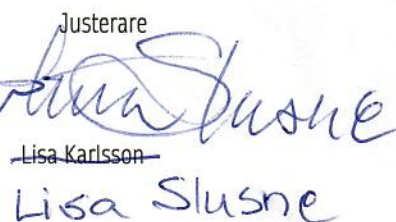 Justerare
Slusne
Lisa Karlsson
Lisa Slusne